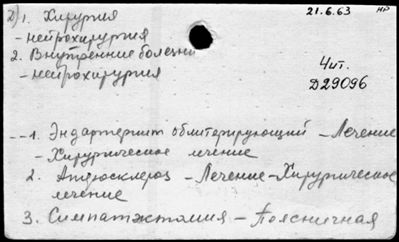 Д) 1. Хирургия 21.6.63 НР
- нейрохирургия
2. Внутренние болезни
- нейрохирургия
Чит.
Д29096
-- 1. Эндартериит облитерирующий - Лечение
- Хирургическое лечение
2. Ангиосклероз - Лечение - Хирургическое
лечение
3. Симпатэктомия - Поясничная